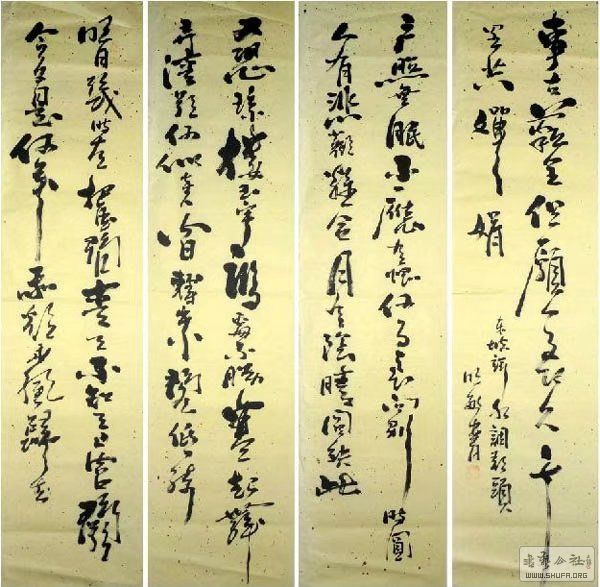 明月幾時有把酒問青天不知天上宮闕
今夕是何年我欲乘風歸去
又恐瓊樓玉宇高處不勝寒起舞
弄清影何似在人間轉朱閣低綺
戶照無眠不應有恨何事長向別時圓
人有悲歡離合月有陰晴圓缺此
事古難全但願人長久千
里共嬋娟
东坡詞水調歌頭
書法公社
WWW.SHUFA.ORG